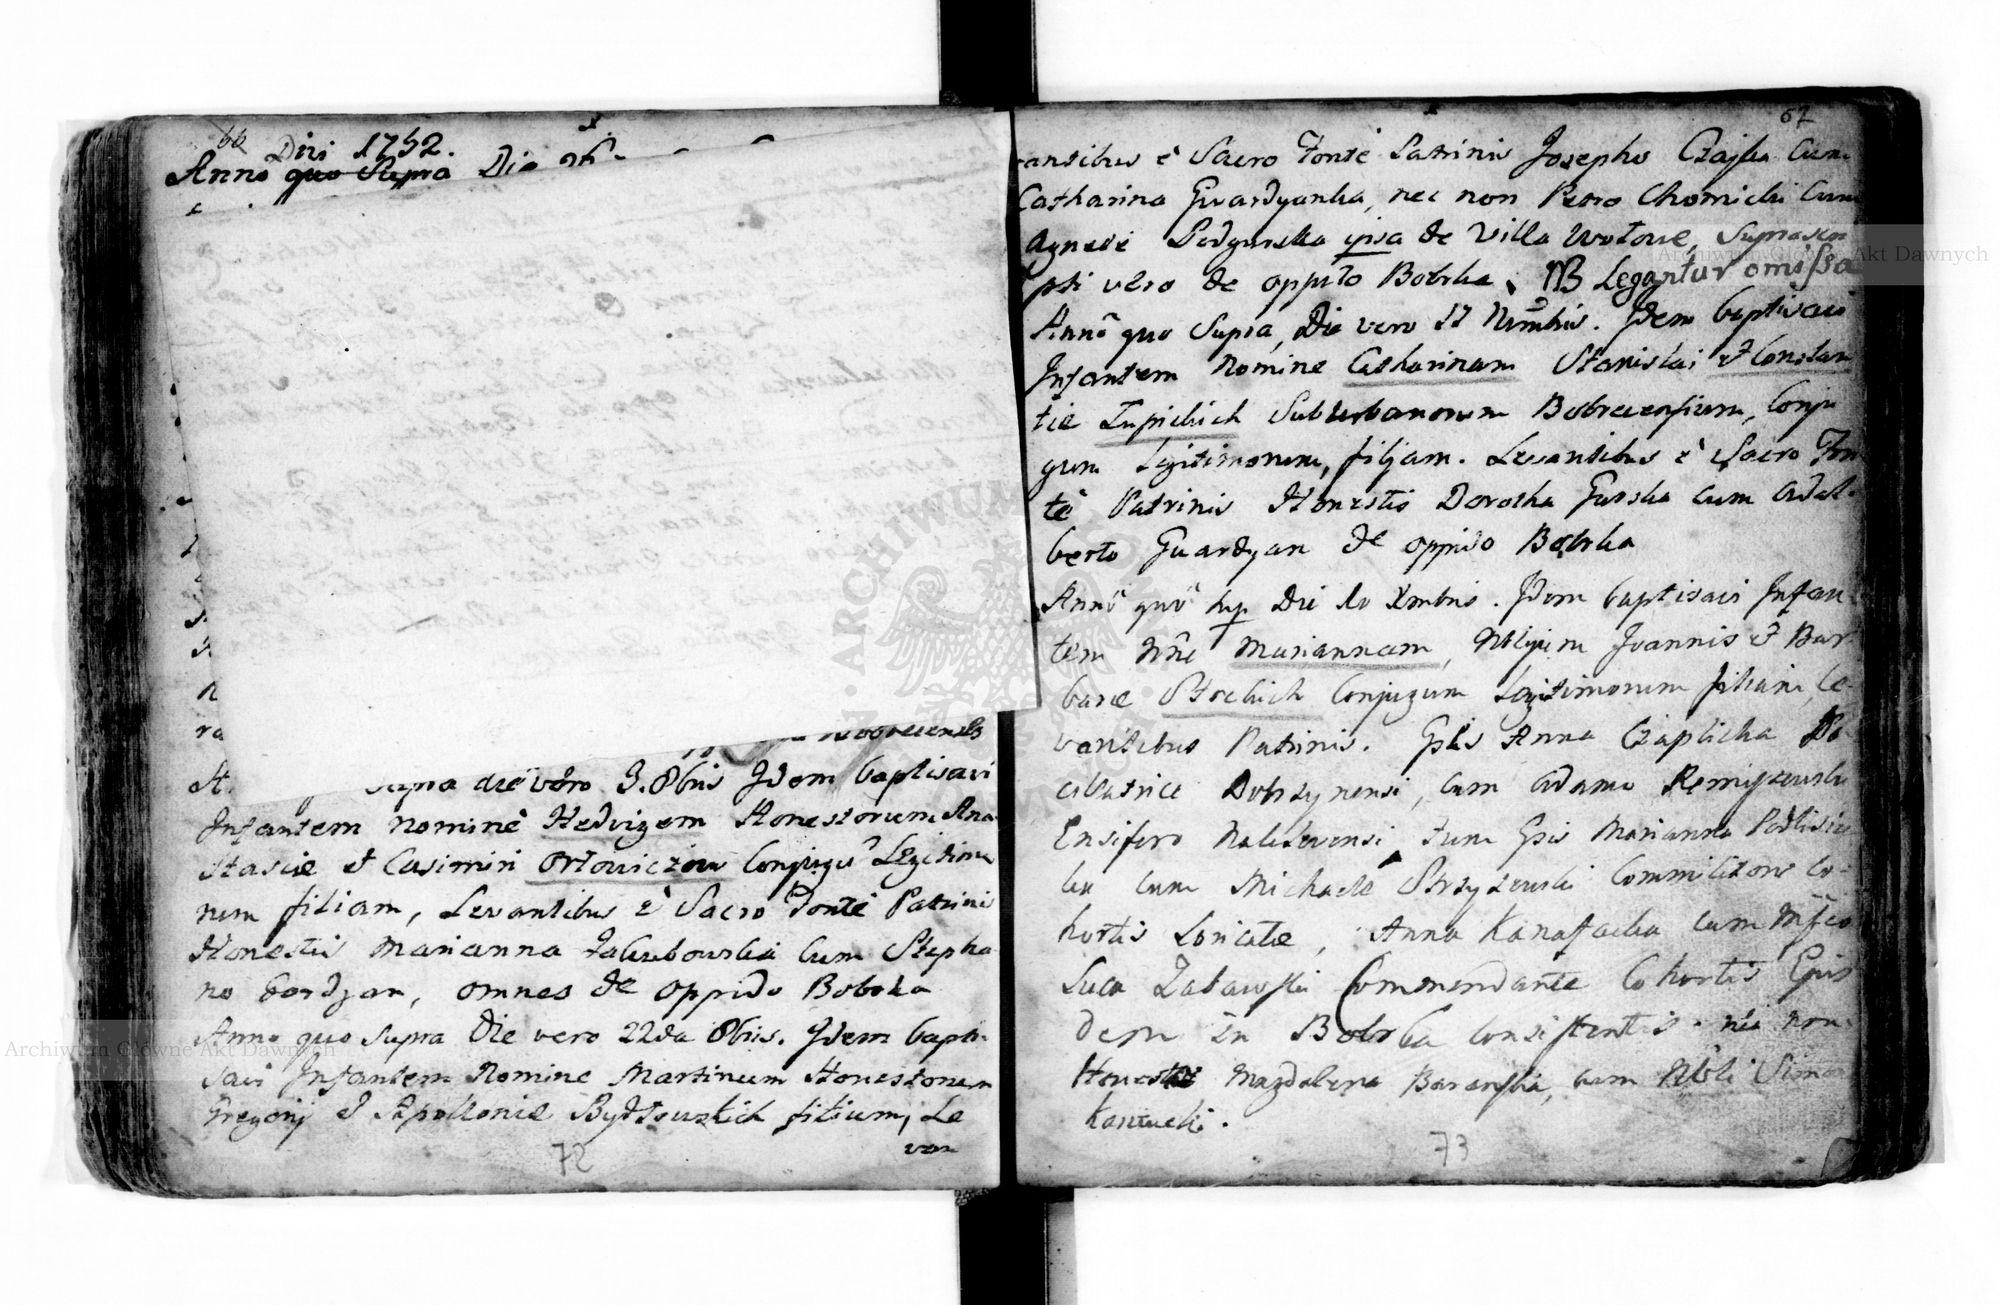 66
Dni 1752.
Anno quo Supra Die
Bobrecensis
Supra die vero 3. 8bris Idem baptisavi
Infantem nomine Hedvigem Honestorum Ana
stasiæ et Casimiri Ortowiczow Conjugū Legitimo
rum filiam, Levantibus è Sacro Fonte Patrinis
Honestis Marianna Jakubowska cum Stepha
no Gordzan, omnes de oppido Bobrka
Anno quo Supra Die vero 22da 8bris. Idem bapti
savi Infantem Nomine Martinum Honestorum
Gregorij et Apolloniæ Bydłowskich filium, Le
van
72
67
vantibus è Sacro Fonte Patrinis Josepho Czajka Cum
Catharina Gwardyanka, nec non Petro Chomicki Cum
Agnete Podgurska ipsa de Villa Wołowe, Suprascri
pti vero de oppido Bobrka. NB Legantur omissa
Anno quo Supra, Die vero 17 Novembris. Idem baptisavi
Infantem Nomine Catharinam Stanislai et Constan
tiæ Lupickich Suburbanorum Bobrecensium, Conju
gum Legitimorum, filjam. Levantibus è Sacro Fon
te Patrinis Honestis Dorothea Gurska cum Adal
berto Guardyan de oppido Bobrka
Anno quo sup Die Xmbris. Idem baptisavi Infan
tem Nne Mariannam, Joannis et Bar
baræ Conjugum Legitimorum filiam, Le
vantibus Patrinis. Gsis Anna Czaplicka Da
Dobrzynensi, cum Adamo
Ensifero, tum Gsis Marianna
cum Michaele Strzyzewski Commilitone Co
hortis Loricatæ, Anna Kanafacka cum Mgfco
Luca Commendante Cohortis
dem in Bobrka consistentis. nec non
Honesta Magdalena Baranska, cum Nbli Simone
73
Archiwum Główne Akt Dawnych
Archiwum Główne Akt Dawnych